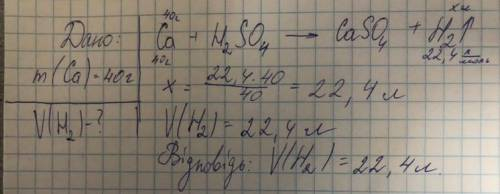 Дано:
m(Ca)=40г
V(H₂)-?
40г х л
Ca + H₂SO₄ → CaSO₄ + H₂↑
40г 22,4 л/моль
x = 22,4·40/40 = 22,4 л
V(H₂) = 22,4 л
Відповідь: V(H₂) = 22,4 л.